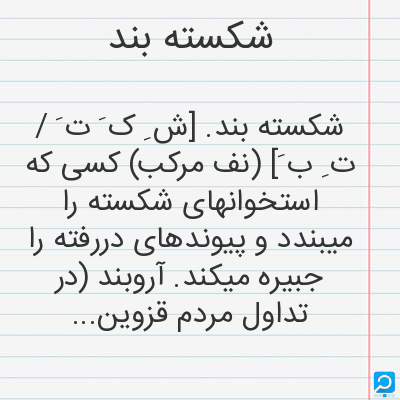 شکسته بند
شکسته بند. [ش ِ ک َ ت َ /
ت ِ ب َ] (نف مرکب) کسی که
استخوانهای شکسته را
میبندد و پیوندهای دررفته را
جبیره میکند. آروبند (در
تداول مردم قزوین...